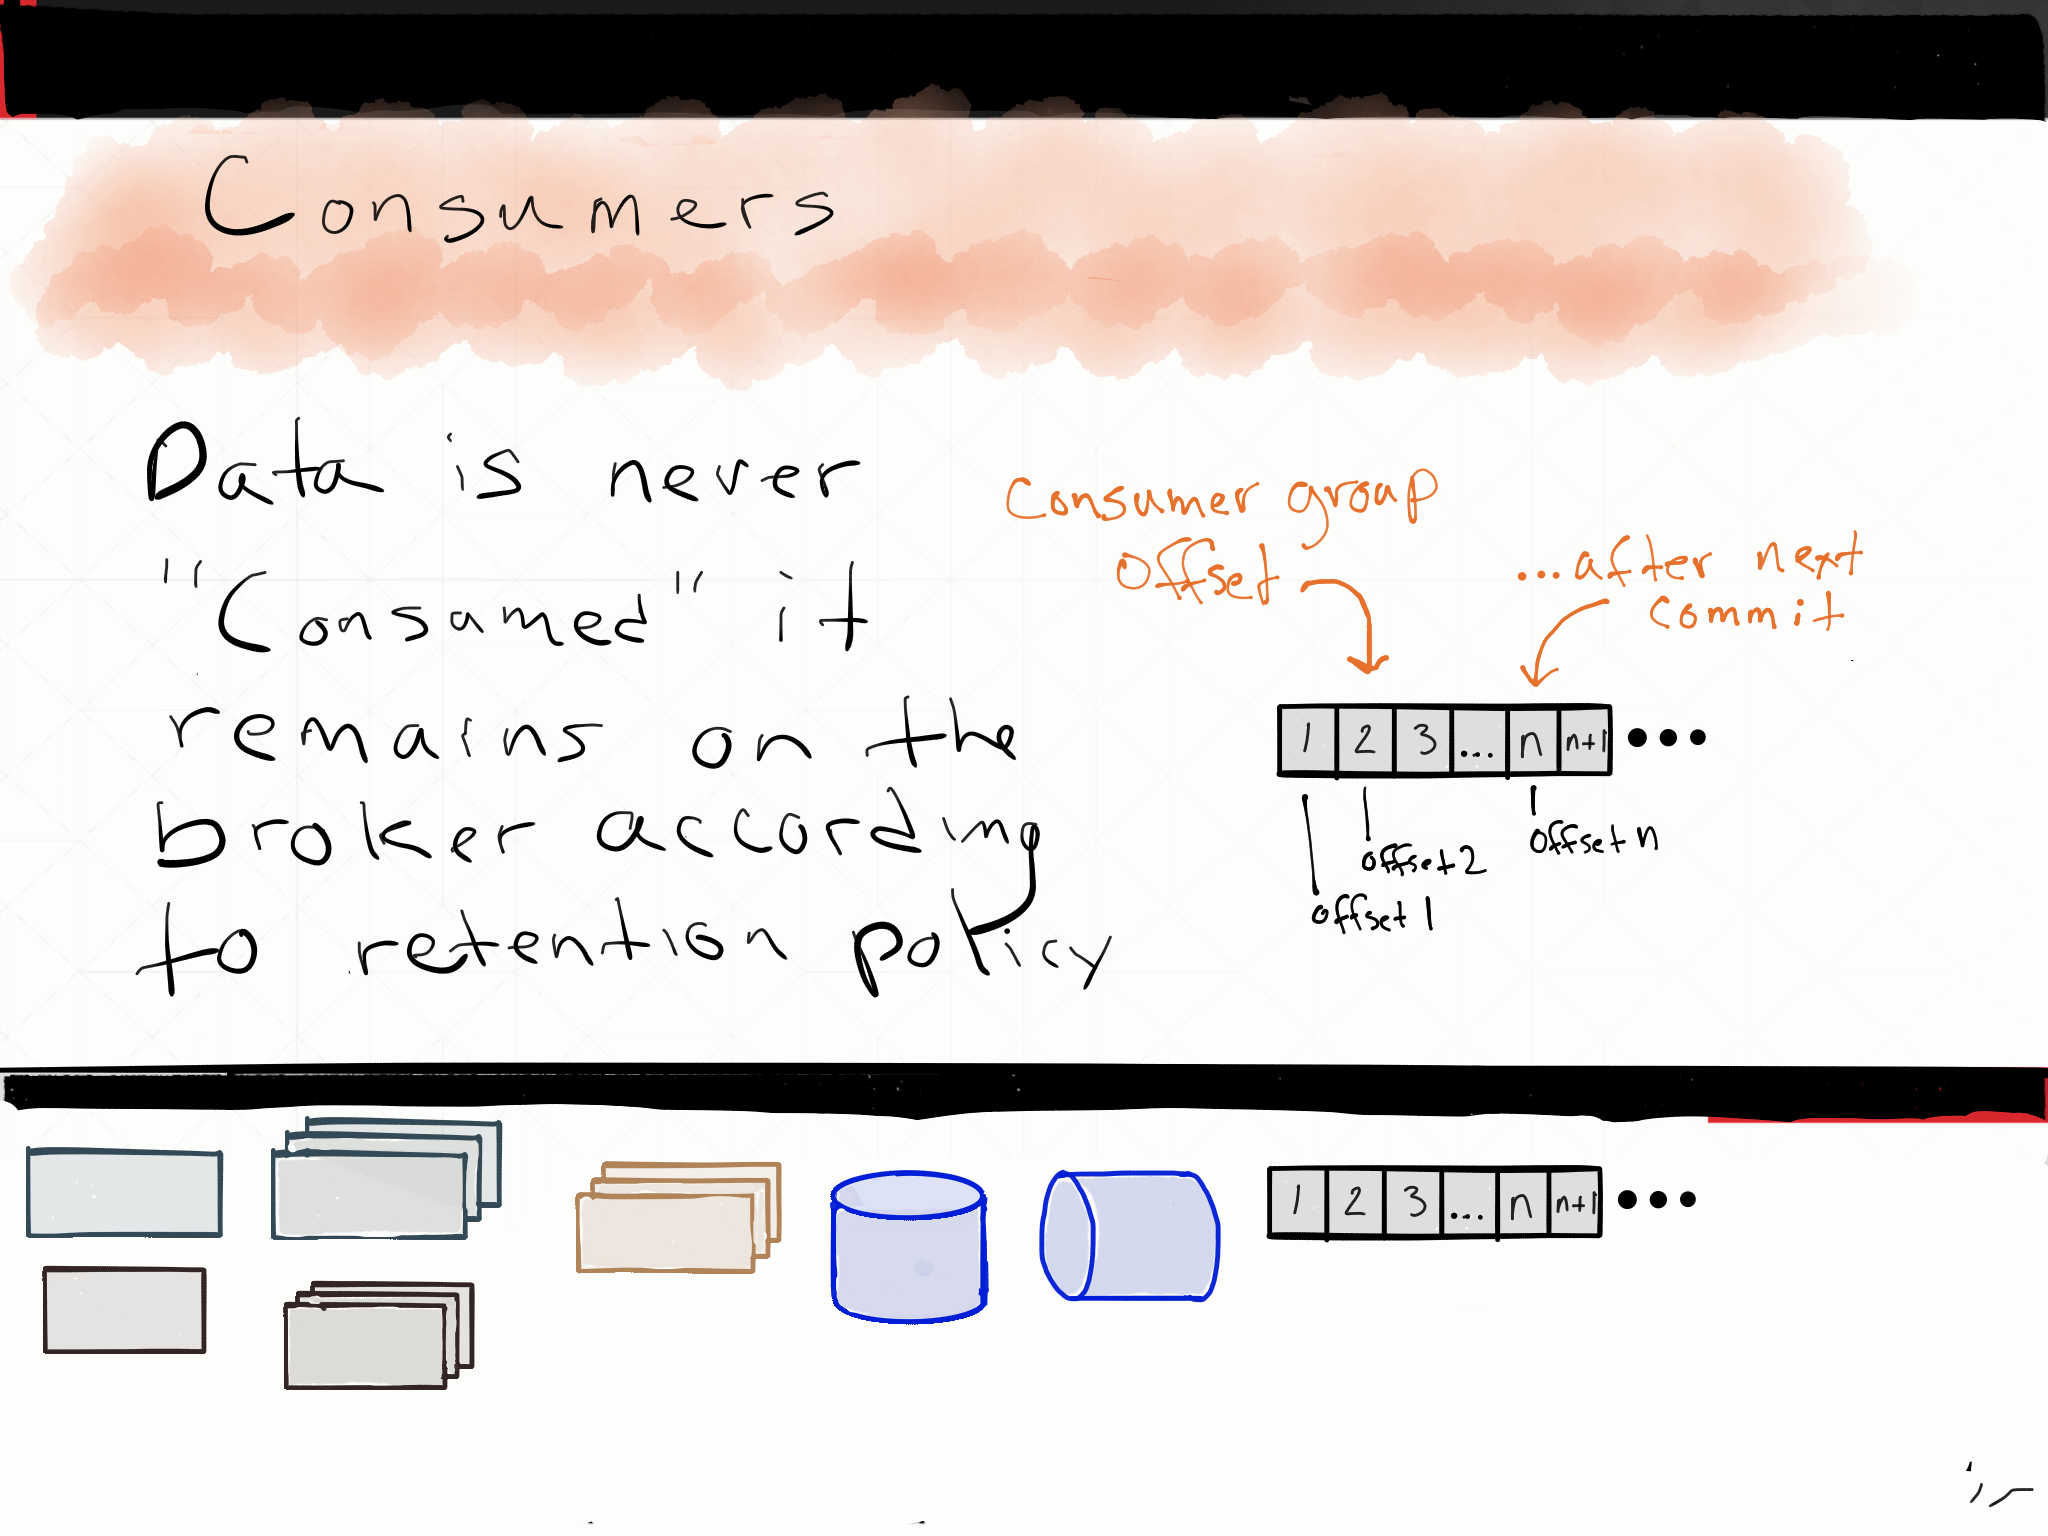 Consumers
Data is never
"Consumed" it
remains on the
broker according
to retention policy
Consumer group
offset
...after next
commit
1 2 3 ... n n+1 •••
offset 2
offset n
offset 1
1 2 3 ... n n+1 •••